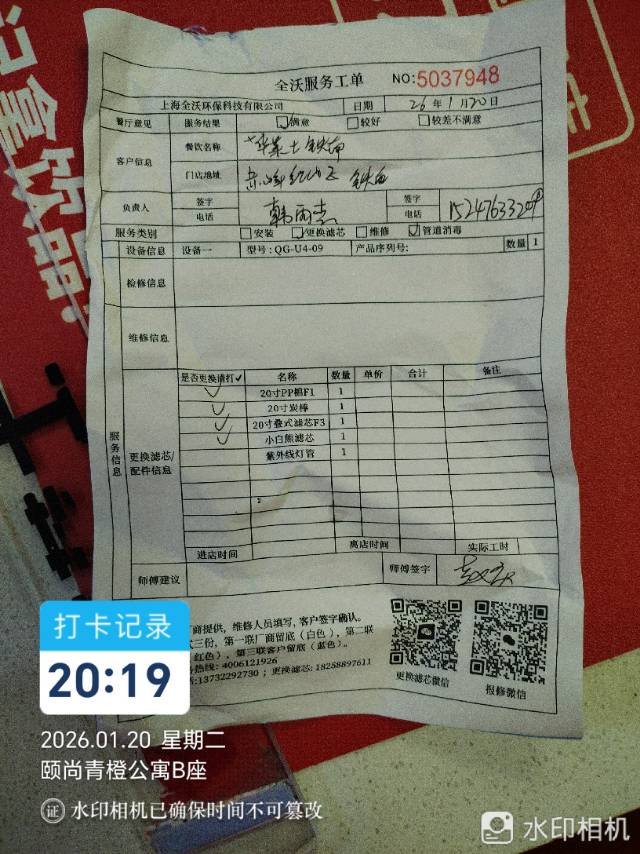 全沃服务工单
NO:5037948
上海全沃环保科技有限公司 日期 26年1月20日
餐厅意见 服务结果 满意 较好 较差不满意
客户信息 餐饮名称
门店地址
负责人 签字 电话 签字 电话
服务类别 安装 更换滤芯 维修 管道消毒
设备信息 设备一 型号:QG-U4-09 产品序列号: 数量 1
检修信息
维修信息
服务信息
更换滤芯/配件信息
是否更换请打✓ 名称 数量 单价 合计 备注
✓ 20寸PP棉F1 1
✓ 20寸炭棒 1
✓ 20寸叠式滤芯F3 1
✓ 小白熊滤芯 1
紫外线灯管 1
进店时间 离店时间 实际工时
师傅建议 师傅签字
商提供,维修人员填写,客户签字确认。
式三份,第一联厂商留底(白色),第二联
红色),第三联客户留底(蓝色)。
热线:4006121926
:13732292730;更换滤芯:18268897611
更换滤芯微信
报修微信
打卡记录
20:19
2026.01.20 星期二
颐尚青橙公寓B座
证 水印相机已确保时间不可篡改
水印相机
汉拿饮品